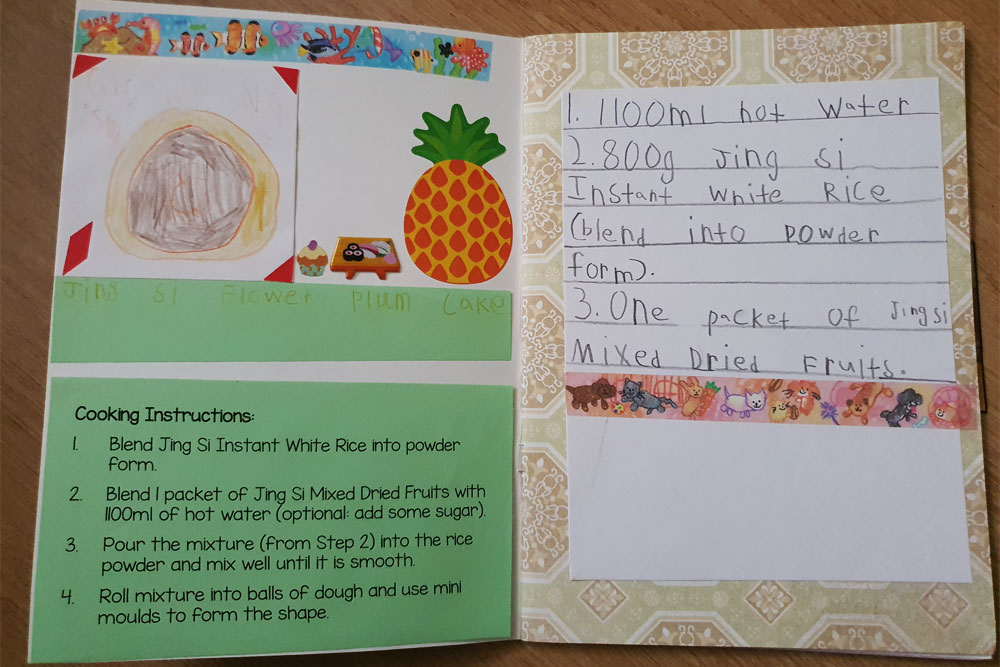 Jing Si Flower Plum Cake
Cooking Instructions:
1. Blend Jing Si Instant White Rice into powder
form.
2. Blend 1 packet of Jing Si Mixed Dried Fruits with
1100ml of hot water (optional: add some sugar).
3. Pour the mixture (from Step 2) into the rice
powder and mix well until it is smooth.
4. Roll mixture into balls of dough and use mini
moulds to form the shape.
1. 1100ml hot water
2. 800g Jing Si
Instant White Rice
(blend into powder
form).
3. One packet of Jing si
Mixed Dried Fruits.